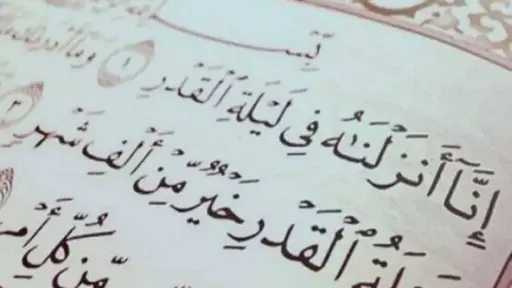 إِنَّآ أَنزَلْنَـٰهُ فِى لَيْلَةِ ٱلْقَدْرِ ١ وَمَآ
ٱلْقَدْرِ خَيْرٌ مِّنْ أَلْفِ شَهْرٍ ٣
مِّن كُلِّ